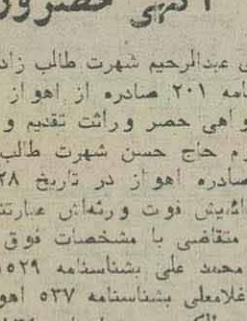 آگهی حصر ور
عبدالرحیم شهرت طالب زاد
نامه ۲۰۱ صادره از اهواز
واهی حصر وراثت تقدیم و
م حاج حسن شهرت طالب
صادره اهواز در تاریخ ۲۸
فوت و ورثه‌اش عبارتند
متقاضی با مشخصات فوق
محمد علی بشناسنامه ۱۵۲۹
غلامعلی بشناسنامه ۵۳۷ اهو